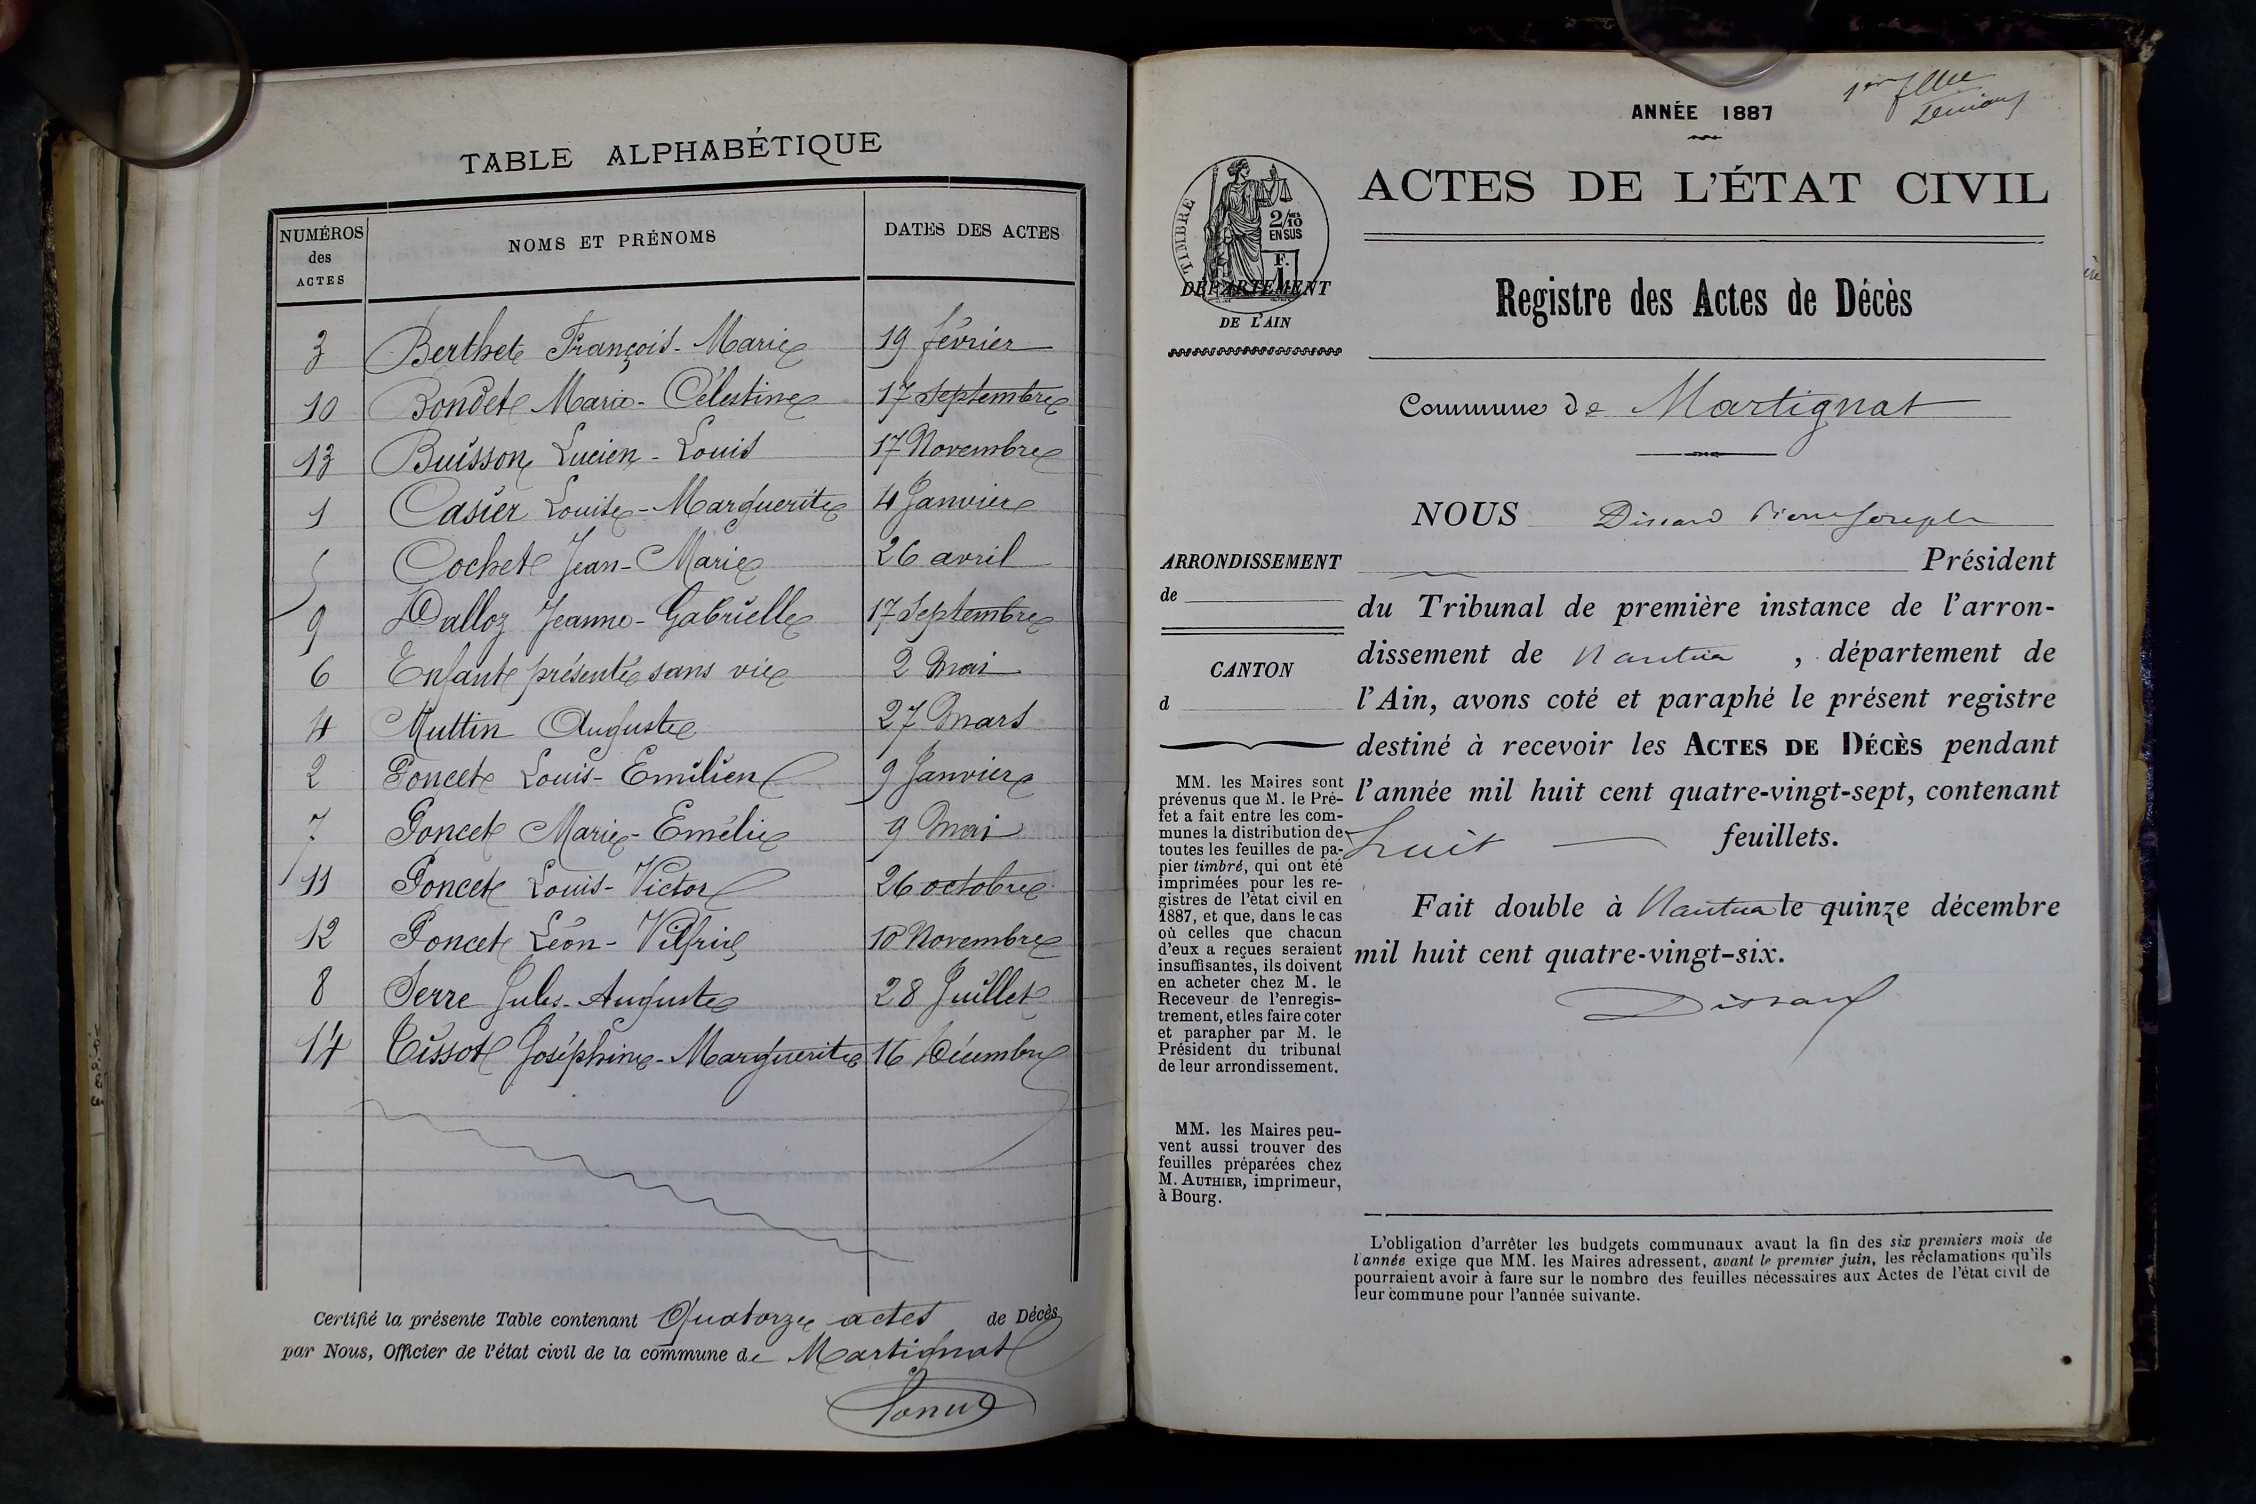 TABLE ALPHABÉTIQUE
NUMÉROS des ACTES NOMS ET PRÉNOMS DATES DES ACTES
3 Berthet François-Marie 19 février
10 Bondet Marie-Célestine 17 Septembre
13 Buisson Lucien-Louis 17 Novembre
1 Casier Louise-Marguerite 4 Janvier
5 Cochet Jean-Marie 26 avril
9 Dalloz Jeanne-Gabrielle 17 Septembre
6 Enfant présenté sans vie 2 Mai
4 Muttin Auguste 27 Mars
2 Poncet Louis-Emilien 9 Janvier
7 Poncet Marie-Emélie 9 Mai
11 Poncet Louis-Victor 26 octobre
12 Poncet Léon-Vilfrid 10 Novembre
8 Serre Jules-Auguste 28 Juillet
14 Tissot Joséphine-Marguerite 16 Décembre
Certifié la présente Table contenant Quatorze actes de Décès
par Nous, Officier de l'état civil de la commune de Martignat
ANNÉE 1887
TIMBRE
2/10
EN SUS
F.
1
DÉPARTEMENT
DE L'AIN
ACTES DE L'ÉTAT CIVIL
Registre des Actes de Décès
Commune de Martignat
ARRONDISSEMENT
de
CANTON
d
MM. les Maires sont
prévenus que M. le Pré-
fet a fait entre les com-
munes la distribution de
toutes les feuilles de pa-
pier timbré, qui ont été
imprimées pour les re-
gistres de l'état civil en
1887, et que, dans le cas
où celles que chacun
d'eux a reçues seraient
insuffisantes, ils doivent
en acheter chez M. le
Receveur de l'enregis-
trement, et les faire coter
et parapher par M. le
Président du tribunal
de leur arrondissement.
MM. les Maires peu-
vent aussi trouver des
feuilles préparées chez
M. AUTHIER, imprimeur,
à Bourg.
NOUS Dissard Pierre Joseph
Président
du Tribunal de première instance de l'arron-
dissement de Nantua, département de
l'Ain, avons coté et paraphé le présent registre
destiné à recevoir les ACTES DE DÉCÈS pendant
l'année mil huit cent quatre-vingt-sept, contenant
huit feuillets.
Fait double à Nantua le quinze décembre
mil huit cent quatre-vingt-six.
Dissard
L'obligation d'arrêter les budgets communaux avant la fin des six premiers mois de
l'année exige que MM. les Maires adressent, avant le premier juin, les réclamations qu'ils
pourraient avoir à faire sur le nombre des feuilles nécessaires aux Actes de l'état civil de
leur commune pour l'année suivante.